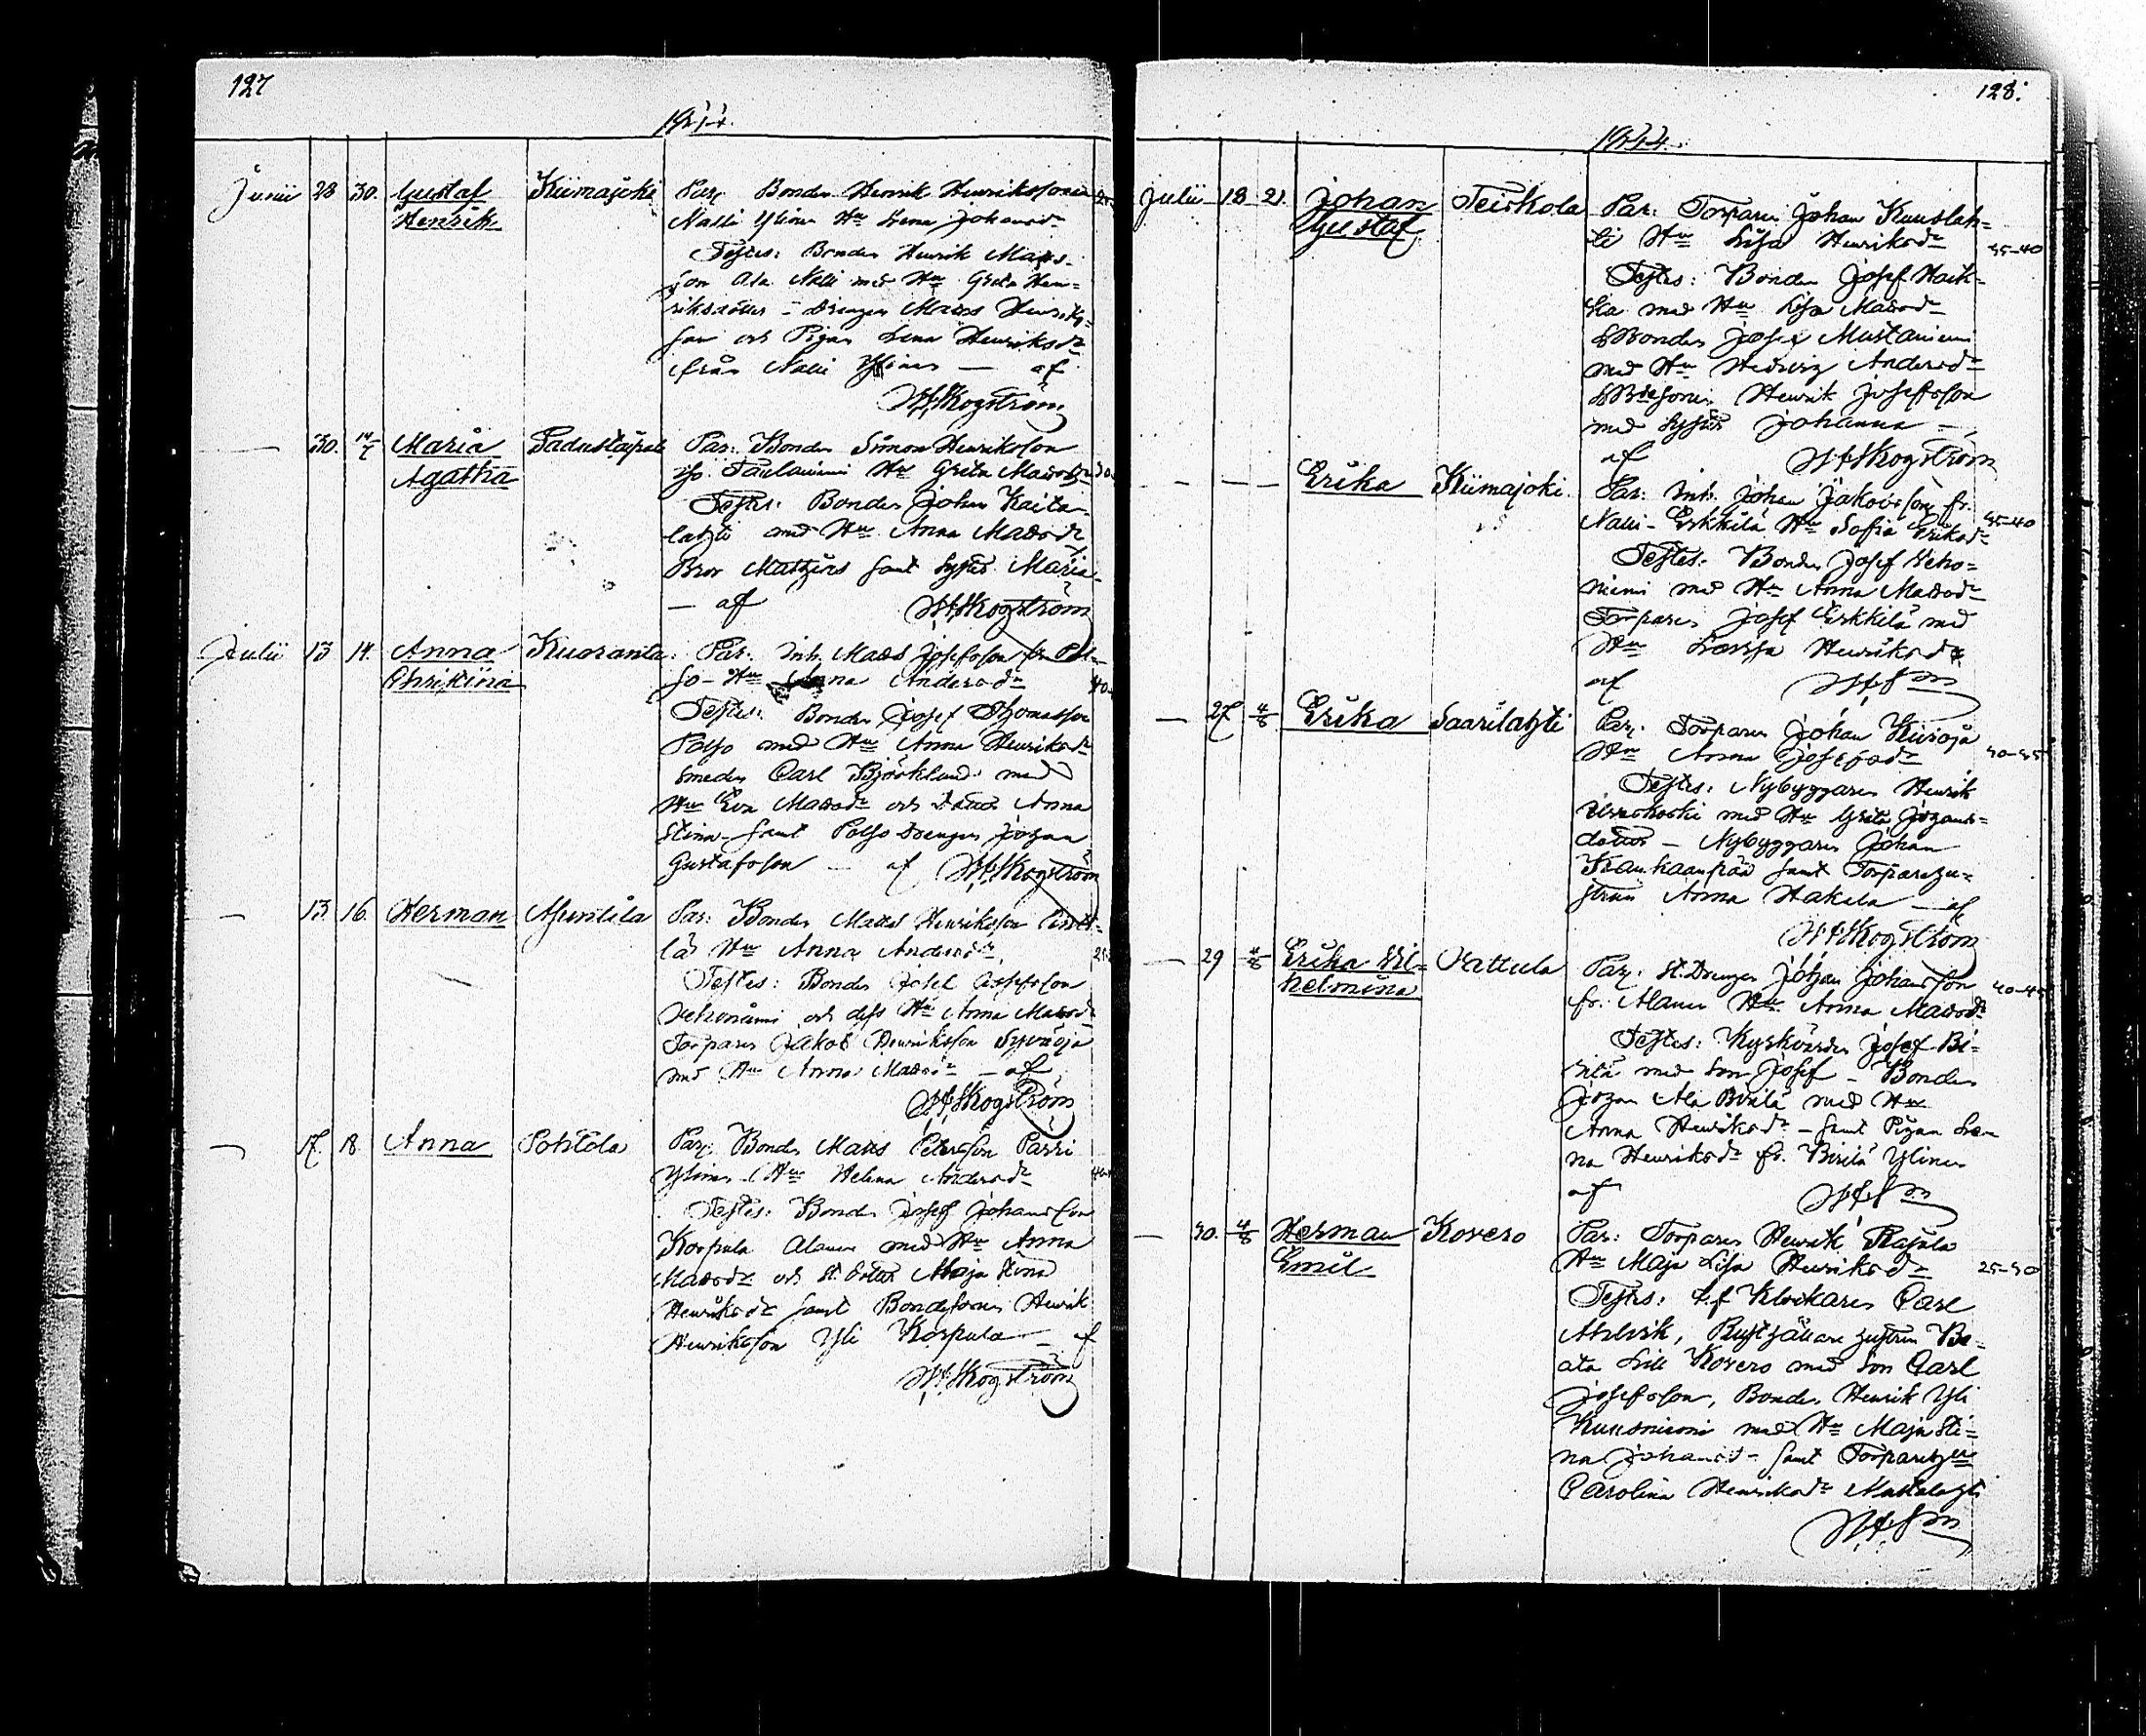 127
1844.
Junii 28 30. Gustaf Kiimajoki Par: Bonden Henrik Henriksson
Henrik Nalli Ylinen Hu Lena Johansdr
Testes: Bonden Henrik Matts-
son Ala Nalli med Hu Greta Hen-
riksdotter - Drengen Matts Henriks-
son och Pigan Lena Henriksdr
från Nalli Ylinen — af
Skogström
— 30. 14/7 Maria Par: Bonden Simon Henriksson
Agatha Hu Greta Mattsdr
Testes: Bonden Johan Kaita-
lahti med Hu Anna Mattsdr
Bror Mathias samt Syster Maria
— af Skogström
Julii 13 14. Anna Kuoranta Par: Inh. Matts Josefsson fr. Pol-
Christina so - Hu Anna Andersdr
Testes: Bonden Josef Thomasson
Polso med Hu Anna Henriksdr
Smeden Carl Björklund med
Hu Eva Mattsdr och Dotter Anna
Stina - samt Polso Drengen Johan
Gustafsson — af Skogström
— 13 16. Herman Äfuntila Par: Bonden Matts Henriksson
lä Hu Anna Andersdr
Testes: Bonden Josef Josefsson
Vehoniemi och dess Hu Anna Mattsdr
Torparen Jakob Henriksson Syvioja
med Hu Anna Mattsdr — af
Skogström
— 17. 18. Anna Sotkola Par: Bonden Matts Petersson Parri
Ylinen - Hu Helena Andersdr
Testes: Bonden Josef Johansson
Korpula Alanen med Hu Anna
Mattsdr och St. Dotter Maja Stina
Henriksdr samt Bondesonen Henrik
Henriksson Yli Korpula — af
Skogström
128.
1844.
Julii 18 21. Johan Teiskola Par: Torparen Johan Kuuslah-
Gustaf ti Hu Lisa Henriksdr 35-40
Testes: Bonden Josef Haik-
ka med Hu Lisa Mattsdr
Bonden Josef Mustaniemi
med Hu Hedvig Andersdr
Henrik Josefsson
med Syster Johanna —
af Skogström
— — — Erika Kiimajoki. Par: Inh. Johan Jakobsson fr.
Nalli - Erkkilä Hu Sofia Eriksdr 35-40
Testes: Bonden Josef Veho-
niemi med Hu Anna Mattsdr
Torparen Josef Erkkilä med
Hu Lovisa Henriksdr
af
— 27 4/8 Erika Saarilahti Par: Torparen Johan Kivioja
Hu Anna Josefsdr 30-35
Testes: Nybyggaren Henrik
med Hu Greta Johans-
dotter — Nybyggaren Johan
Kaukaanpää samt Torparehu-
strun Anna Hakala — af
Skogström
— 29 4/8 Erika Vil- Vattula Par: St. Drengen Johan Johansson 40-45
helmina fr. Alanen Hu Anna Mattsdr
Testes: Kyrkvärden Josef Bi-
rilä med Son Josef - Bonden
Johan Ala Birilä med Hu
Anna Henriksdr — samt Pigan Le-
na Henriksdr fr. Birilä Ylinen
af
— 30. 4/8 Herman Kovero Par: Torparen Henrik Rajala
Emil Hu Maja Lisa Henriksdr 25-30
Testes: t.f Klockaren Carl
Ahlvik, Rusthållare hustrun Be-
ata Lill Kovero med Son Carl
Josefsson, Bonden Henrik Yli
Kuusniemi med Hu Maja Sti-
na Johansdr - samt Torparehu
Carolina Henriksdr